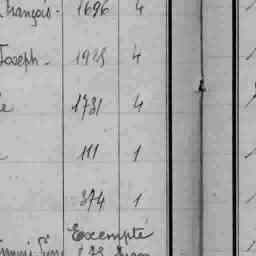 François - 1696 4
Joseph - 1925 4
e 1731 4
111 1
374 1
Exempté